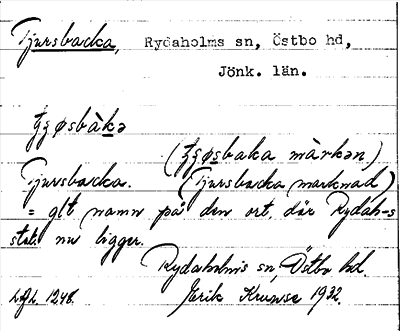 Tjursbacka, Rydaholms sn, Östbo hd,
Jönk. län.
(                    màrkən)
Tjursbacka. (Tjursbacka marknad)
= glt namn på den ort, där Rydah-s
stat. nu ligger.
Rydaholms sn, Östbo hd.
1248. Erik Krumse 1932.